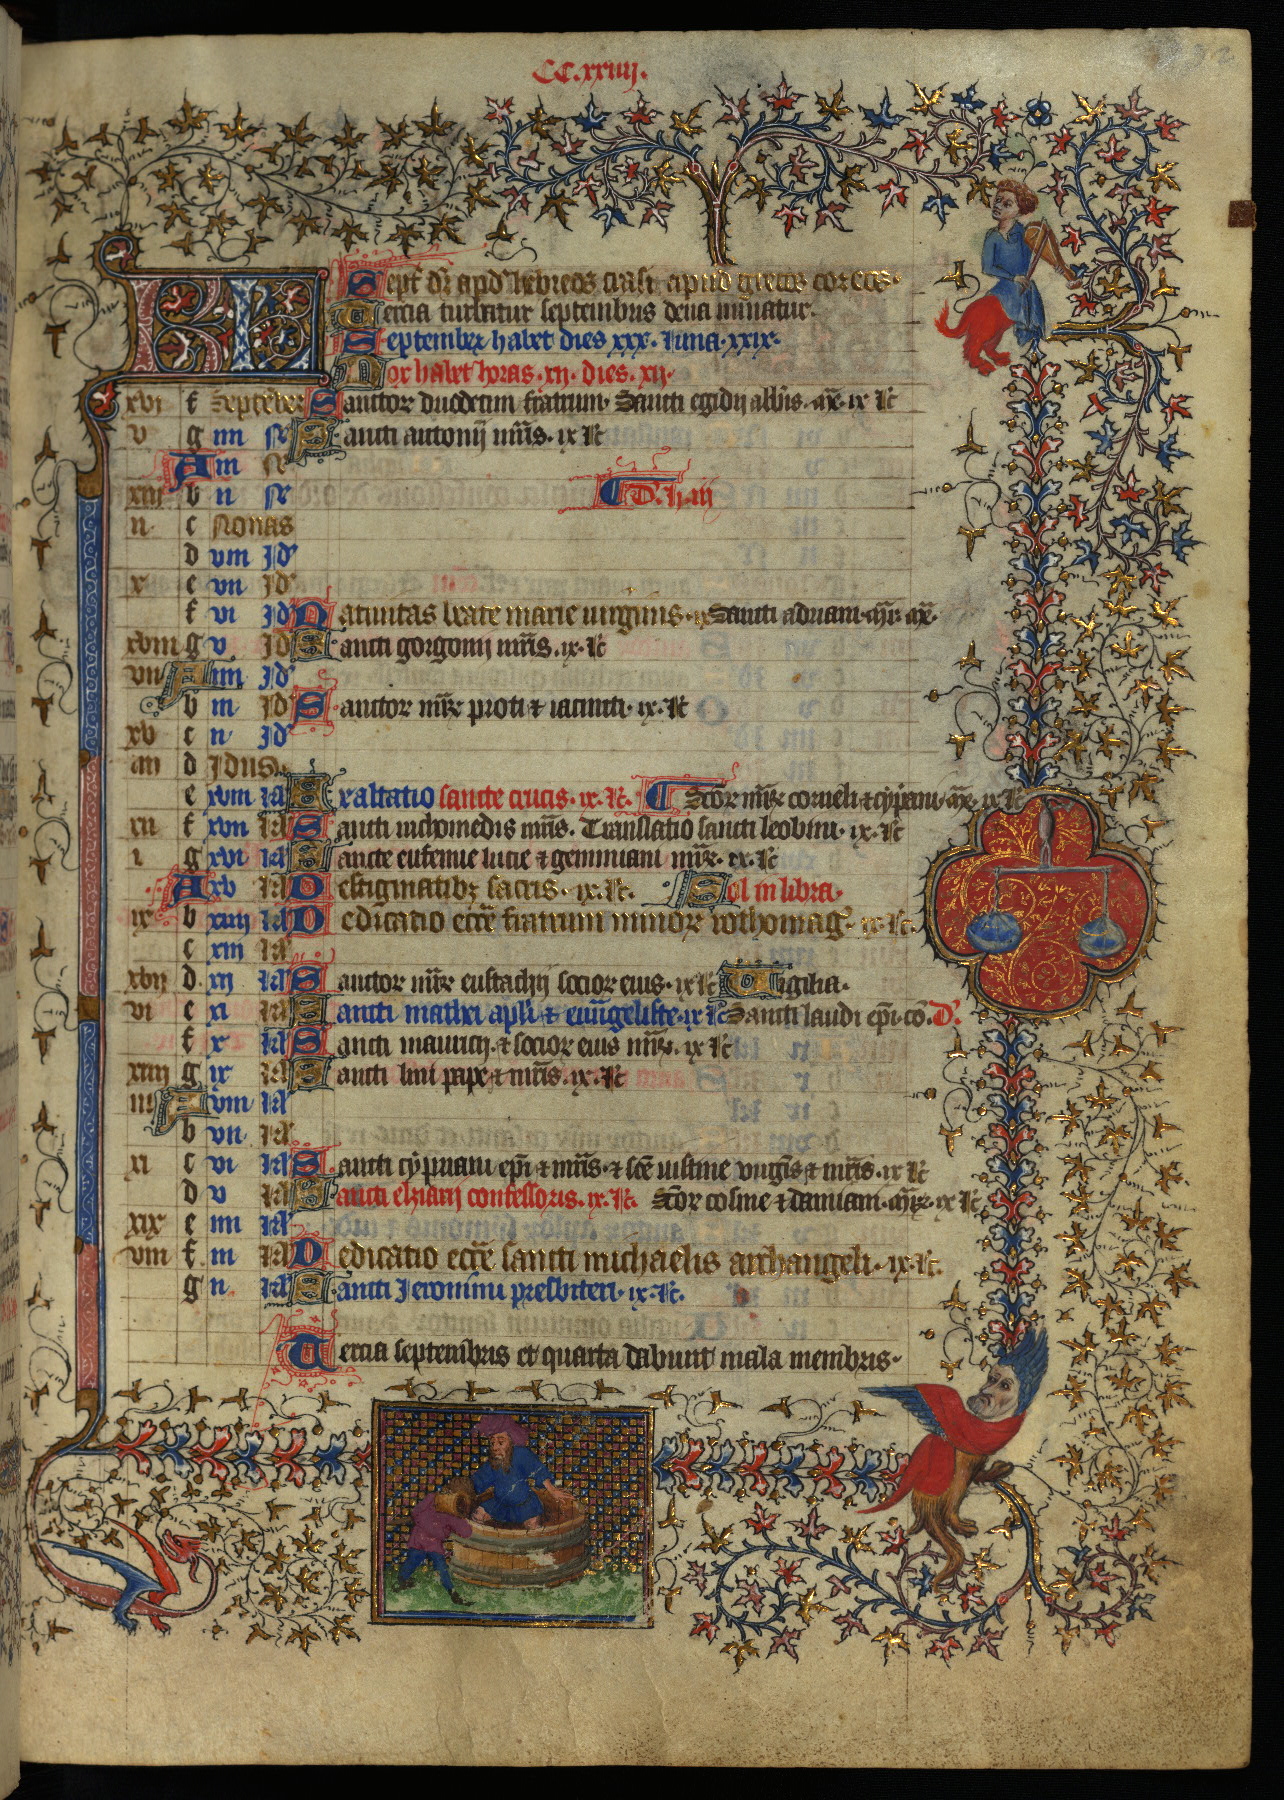 CC.xxiiij.
Sept dr apd hebreos
Tercia turbatur septembris dena minatur.
KL September habet dies xxx. luna. xxix.
Nox habet horas. xij. dies. xij.
xvi f Septēber Sanctor duodecim fratrum. Sancti egidij abbis. ix lc
v g iiii N Sancti antonij mris. ix lc
A iii N
xiii b ii N D. l. iij
ii c Nonas
d viii Id
x e vii Id
f vi Id Natiuitas beate marie uirginis. ix Sancti adriani mr.
xviii g v Id Sancti gorgonij mris. ix. lc
vii A iiii Id
b iii Id Sanctor mr proti & iacincti. ix. lc
xv c ii Id
iiii d Idus
e xviii kl Exaltatio sancte crucis. ix. lc. Scor mr corneli & cypriani. ix lc
xii f xvii kl Sancti nichomedis mris. Translatio sancti leobini. ix. lc
i g xvi kl Sancte eufemie lucie & geminiani mr. ix. lc
A xv kl De stigmatibz sacris. ix. lc. Sol in libra.
ix b xiiii kl Dedicatio ecce fratrum minor rothomag. ix. lc.
c xiii kl
xvii d xii kl Sanctor mr eustachij socior eius. ix lc Vigilia.
vi e xi kl Sancti mathei apli & euuangeliste. ix lc Sancti laudi epi. co. D.
f x kl Sancti mauricij & socior eius mr. ix lc
xiiii g ix kl Sancti lini pape & mris. ix. lc
iii A viii kl
b vii kl
xi c vi kl Sancti cypriani epi & mris. & sce iustine uirgis & mris. ix lc
d v kl Sancti elziarij confessoris. ix. lc. Scor cosme & damiani. mr. ix lc
xix e iiii kl
viii f iii kl Dedicatio ecce sancti michaelis archangeli. ix. lc.
g ii kl Sancti Ieronimi presbiteri. ix. lc.
Tercia septembris et quarta dabunt mala membris.